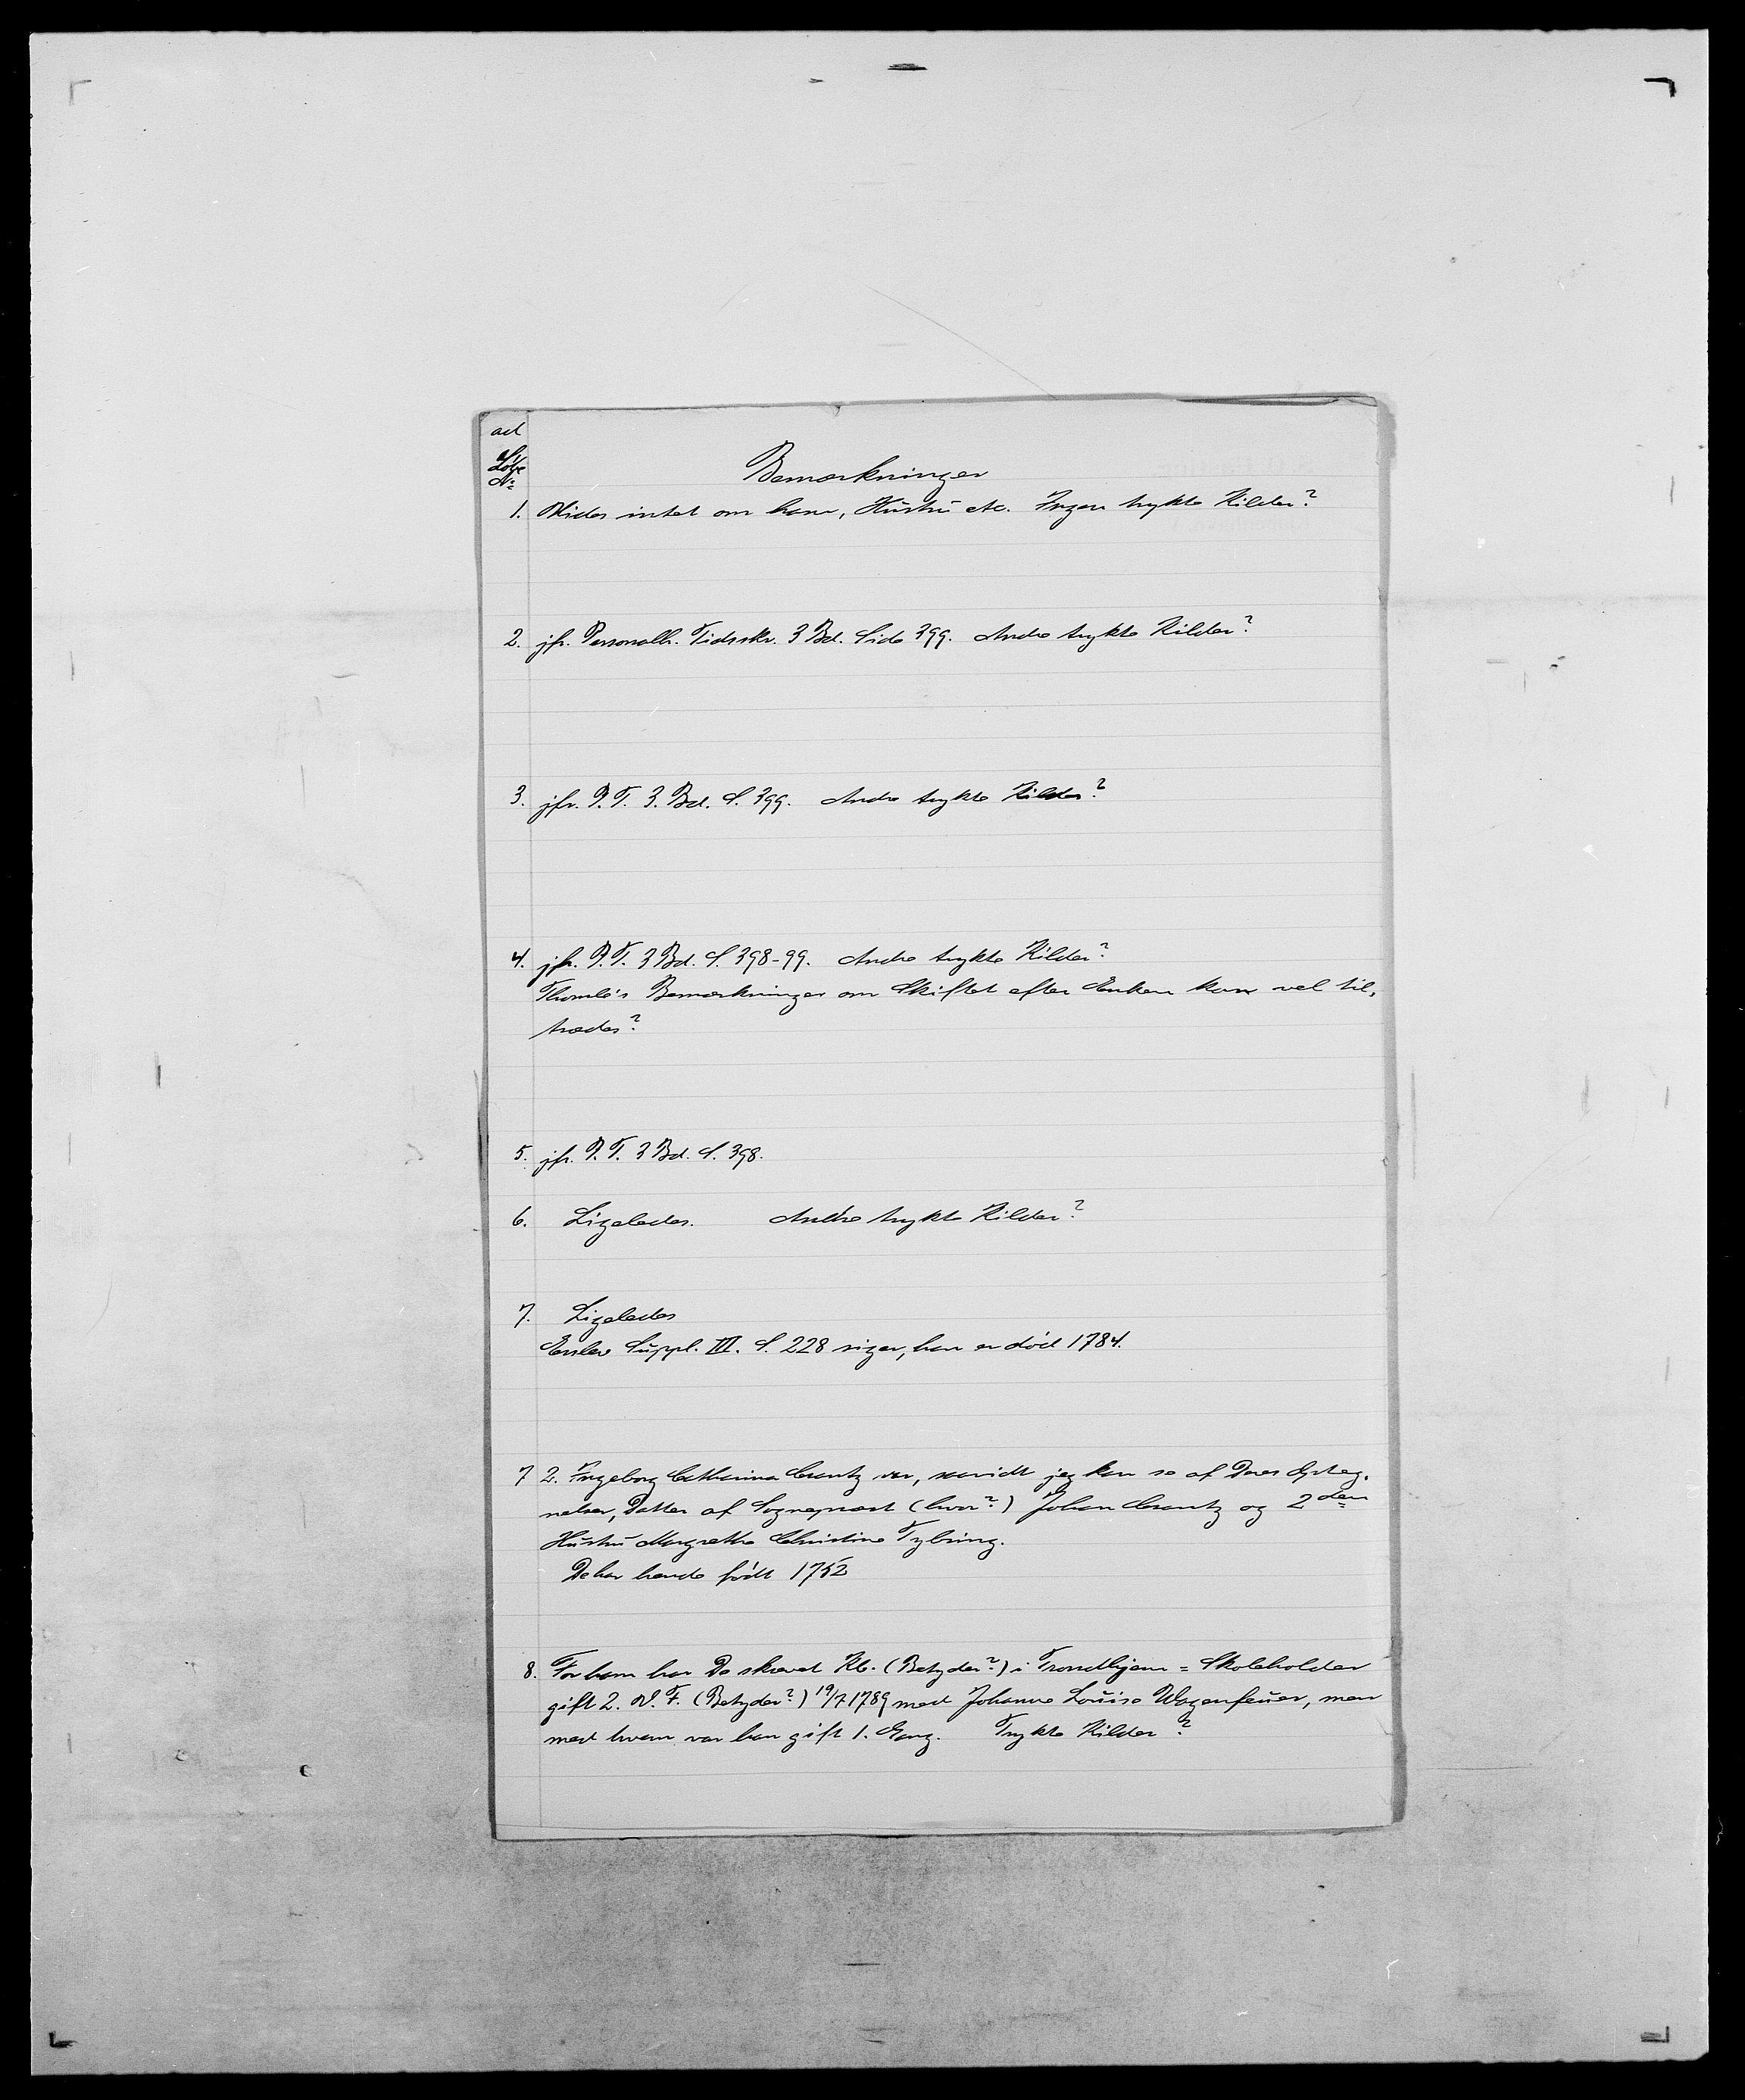 ad
Løbe
№
Bemærkninger
1. Vides intet om ham, Hustru etc. Ingen trykte Kilder?
2. jfr. Personalh. Tidsskr. 3 Bd. Side 399. Andre trykte Kilder?
3. jfr. P. T. 3. Bd. S. 399. Andre trykte Kilder?
4. jfr. P. T. 3 Bd. S. 398-99. Andre trykte Kilder?
Thomle's Bemærkninger om Skiftet efter Enken kan vel til-
trædes?
5. jfr. P. T. 3 Bd. S. 398.
6. Ligeledes. Andre trykte Kilder?
7. Ligeledes
Erslev Suppl. III. S. 228 siger, han er død 1784.
7 2. Ingeborg Catharina Crantz var, saavidt jeg kan se af Deres Opteg-
nelser, Datter af Sognepræst (hvor?) Johan Crantz og 2den
Hustru Margrethe Christine Tybring.
De har hende født 1752
8. For ham har De skrevet Kb. (Betyder?) i Trondhjem = Skoleholder
gift 2. V. F. (Betyder?) 19/7 1789 med Johanne Louise Wagenfeuer, men
med hvem var han gift 1. Gang. Trykte Kilder?